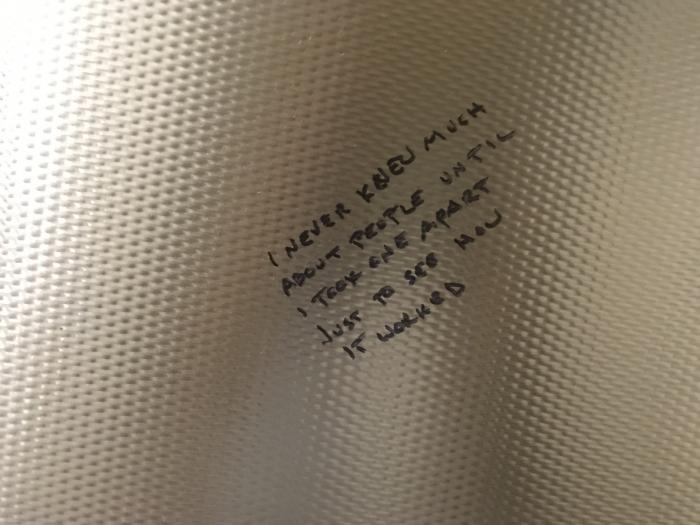 I NEVER KNEW MUCH
ABOUT PEOPLE UNTIL
I TOOK ONE APART
JUST TO SEE HOW
IT WORKED